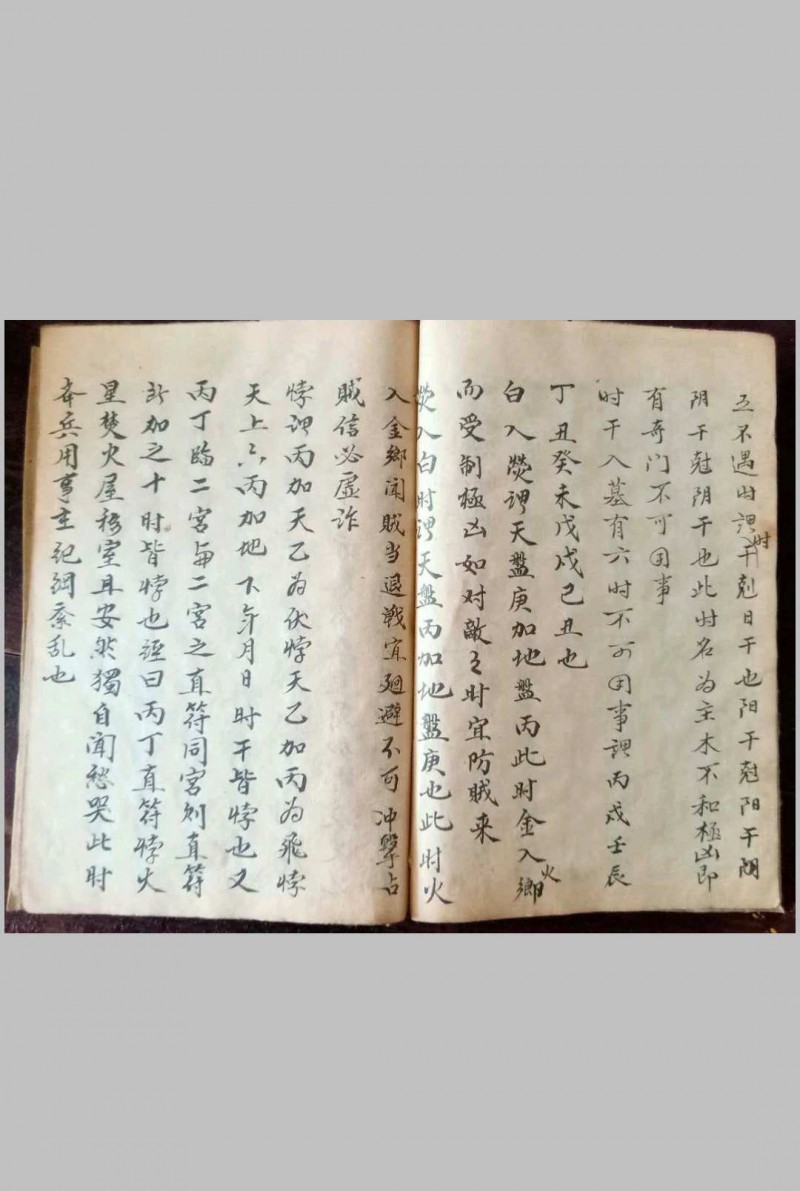 五不遇时謂时干尅日干也阳干尅阳干阴
阴干尅阴干也此时名为主本不和極凶即
有奇门不可用事
时干入墓有六时不可用事謂丙戌壬辰
丁丑癸未戊戌己丑也
白入熒謂天盤庚加地盤丙此时金入火鄉
而受制極凶如对敵之时宜防贼来
熒入白时謂天盤丙加地盤庚也此时火
入金鄉聞贼当退戰宜廻避不可冲擊占
贼信必虚诈
悖謂丙加天乙为伏悖天乙加丙为飛悖
天上六丙加地下年月日时干皆悖也又
丙丁臨二宫每二宫之直符同宫则直符
加之十时皆悖也經曰丙丁直符悖火
星焚火屋移室且安然獨自闻愁哭此时
奔兵用事主紀綱紊乱也